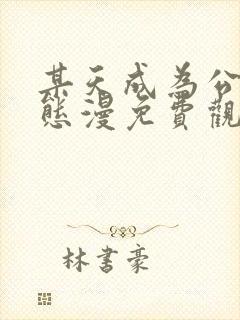 某天成為公
態漫免費觀
林書豪